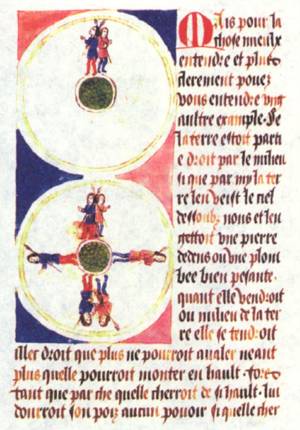 Mais pour la
chose mieulx
entendre et plus
clerement pouez
vous entendre ung
aultre example. Se
la terre estoit parti
e droit par le milieu
si que par my la ter
re len veist le ciel
dessoubz nous et len
gettoit une pierre
dedens ou une plom
bee bien pesante.
quant elle vendroit
ou milieu de la ter
re elle se tendroit
aller droit que plus ne pourroit avaler neant
plus quelle pourroit monter en hault. fors
tant que par che quelle cherroit de si hault. lui
donrroit son poiz aucun pouoir si quelle cher